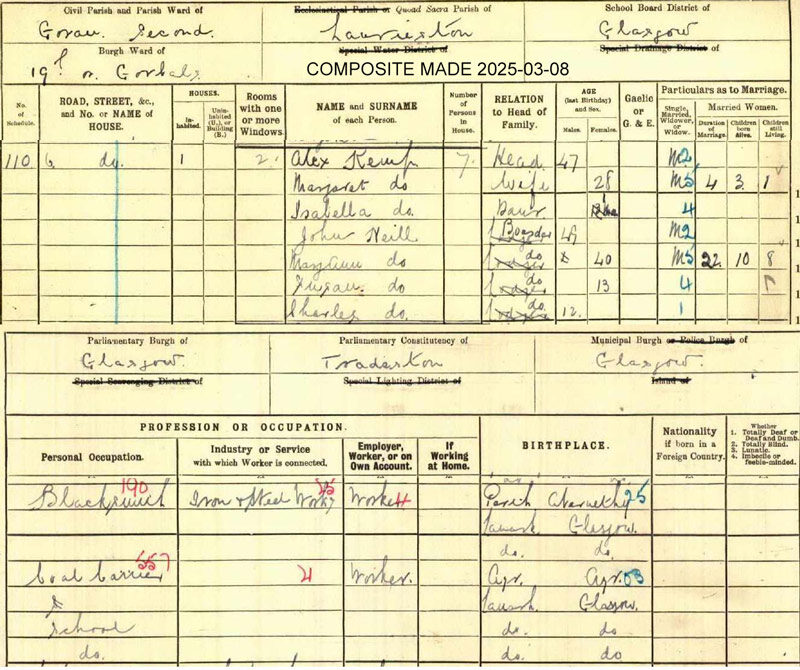 Civil Parish and Parish Ward of
Govan. Second.
Ecclesiastical Parish or Quoad Sacra Parish of
Laurieston
School Board District of
Glasgow
Burgh Ward of
19th or Gorbals
Special Water District of
Special Drainage District of
COMPOSITE MADE 2025-03-08
No. of Schedule.
ROAD, STREET, &c., and No. or NAME of HOUSE.
HOUSES.
In-habited.
Unin-habited (U.), or Building (B.)
Rooms with one or more Windows.
NAME and SURNAME of each Person.
Number of Persons in House.
RELATION to Head of Family.
AGE (last Birthday) and Sex.
Males.
Females.
Gaelic or G. & E.
Particulars as to Marriage.
Single, Married, Widower, or Widow.
Married Women.
Duration of Marriage.
Children born Alive.
Children still Living.
110 6 do. 1 2. Alex Kemp 7. Head 47 M2
Margaret do Wife 28 M5 4 3 1
Isabella do. Daur 4
John Neill Boarder 49 M2
MaryAnn do do 40 M5 22 10 8
Susan do do 13 4
Charles do. do. 12. 1
Parliamentary Burgh of
Glasgow.
Parliamentary Constitutency of
Tradeston
Municipal Burgh or Police Burgh of
Glasgow.
Special Scavenging District of
Special Lighting District of
Island of
PROFESSION OR OCCUPATION.
Personal Occupation.
Industry or Service with which Worker is connected.
Employer, Worker, or on Own Account.
If Working at Home.
BIRTHPLACE.
Nationality if born in a Foreign Country.
Whether
1. Totally Deaf or Deaf and Dumb.
2. Totally Blind.
3. Lunatic.
4. Imbecile or feeble-minded.
Blacksmith 190 Iron & Steel Works Worker Perth Abernethy 25
Lanark Glasgow.
do. do.
Coal Carrier 557 4 Worker. Ayr. Ayr. 03
Lanark Glasgow.
School do. do
do. do. do